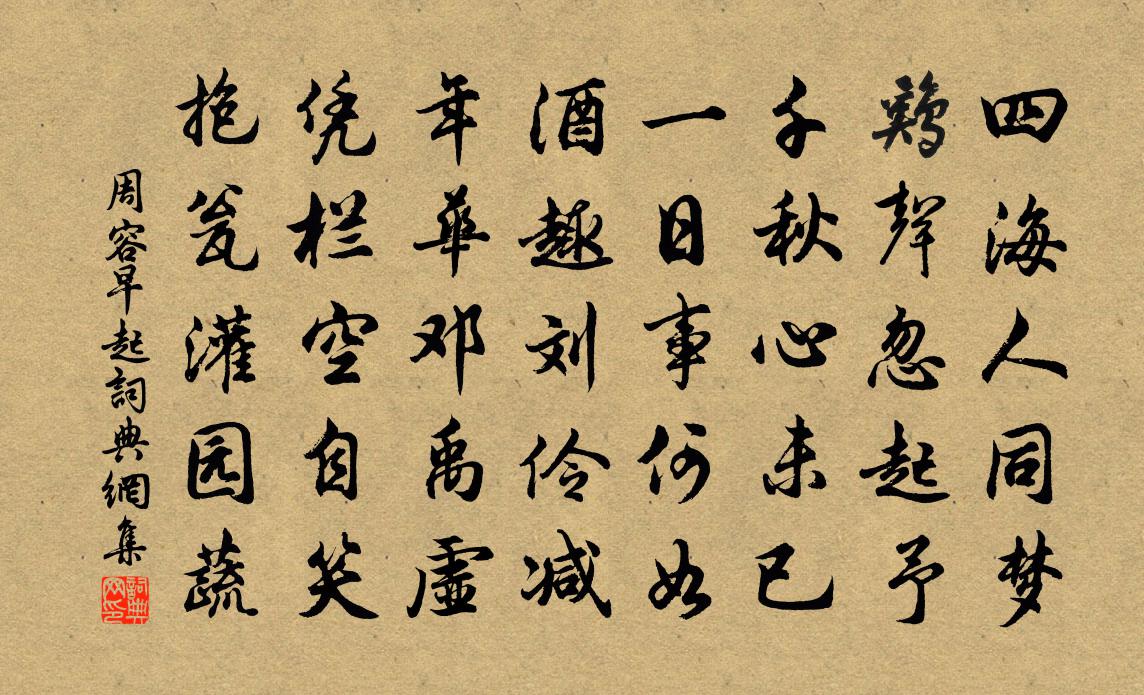 四海人同梦
鶏聲忽起予
千秋心未已
一日事何如
酒趣刘伶减
年華邓禹虚
凭栏空自笑
抱瓮灌园蔬
周容早起詞典網集
詞典网印